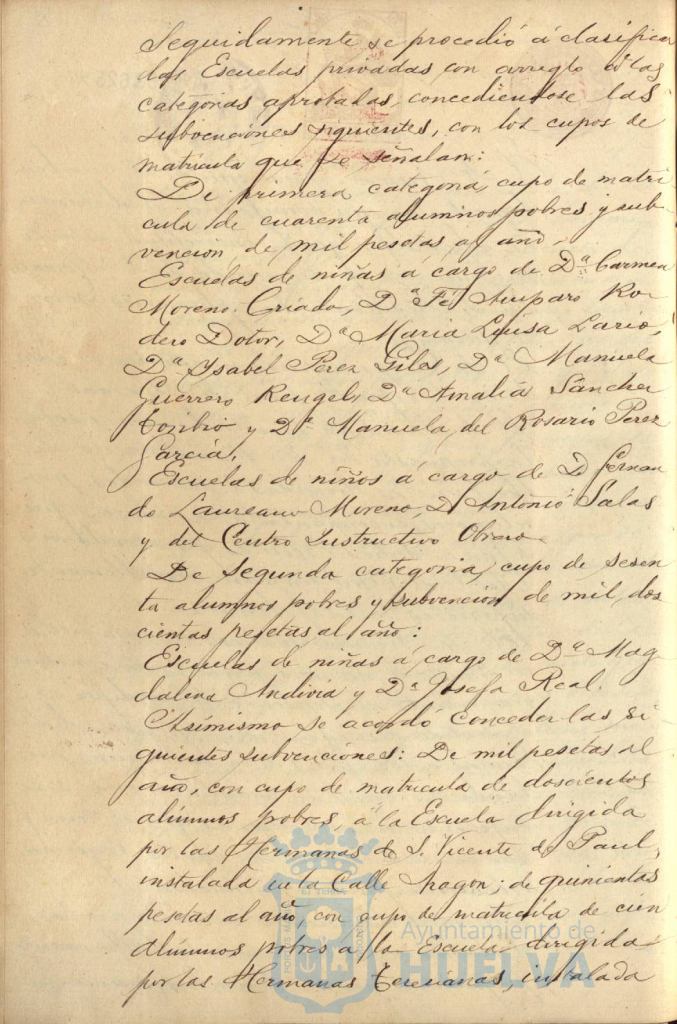 Seguidamente se procedió á clasificar
las Escuelas privadas con arreglo á las
categorias aprobadas, concediendose las
subvenciones siguientes, con los cupos de
matricula que se señalan:
De primera categoria, cupo de matri-
cula de cuarenta alumnos pobres y sub-
vención de mil pesetas al año.
Escuelas de niñas á cargo de Dª Carmen
Moreno Criado, Dª Fé Amparo Ro-
dero Dotor, Dª Maria Luisa Lario,
Dª Ysabel Perez Giles, Dª Manuela
Guerrero Rengel, Dª Amalia Sánchez
Toribio y Dª Manuela del Rosario Perez
Garcia.
Escuelas de niños á cargo de D Fernan
do Laureano Moreno, D Antonio Salas
y del Centro Instructivo Obrero.
De segunda categoria, cupo de sesen
ta alumnos pobres y subvención de mil dos
cientas pesetas al año:
Escuelas de niñas á cargo de Dª Mag
dalena Andivia y Dª Josefa Real.
Asimismo se acordó conceder las si
guientes subvenciones: De mil pesetas al
año, con cupo de matricula de doscientos
alumnos pobres, á la Escuela dirigida
por las Hermanas de S. Vicente de Paul,
instalada en la Calle ; de quinientas
pesetas al año, con cupo de matricula de cien
alumnos pobres a la Escuela dirigida
por las Hermanas Teresianas, instalada
Ayuntamiento de
HUELVA